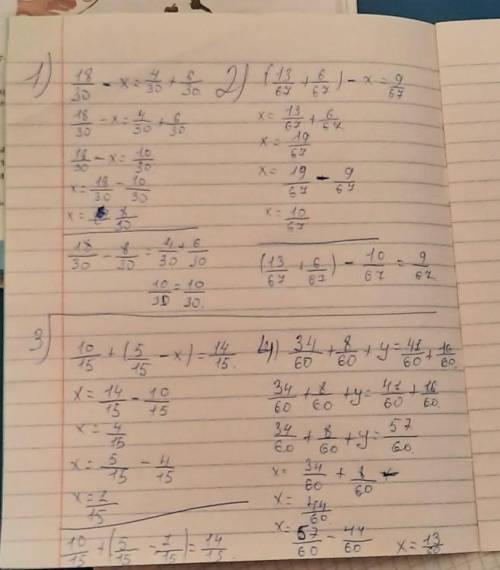 1) 18/30 - x = 4/30 + 6/30
18/30 - x = 4/30 + 6/30
18/30 - x = 10/30
x = 18/30 - 10/30
x = 8/30
18/30 - 8/30 = 4/30 + 6/30
10/30 = 10/30.
2) (13/67 + 6/67) - x = 9/67
x = 13/67 + 6/67
x = 19/67
x = 19/67 - 9/67
x = 10/67
(13/67 + 6/67) - 10/67 = 9/67.
3) 10/15 + (5/15 - x) = 14/15.
x = 14/15 - 10/15
x = 4/15
x = 5/15 - 4/15
x = 1/15
10/15 + (5/15 - 1/15) = 14/15.
4) 34/60 + 8/60 + y = 41/60 + 16/60.
34/60 + 8/60 + y = 41/60 + 16/60.
34/60 + 8/60 + y = 57/60.
x = 34/60 + 8/60
x = 44/60
x = 57/60 - 44/60